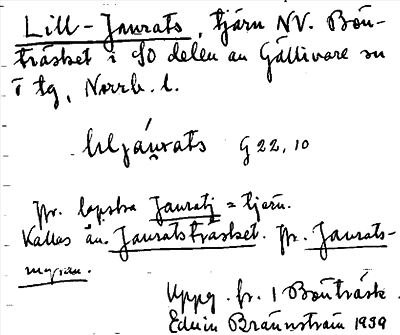 Lill-Jaurats, tjärn NV. Bön-
träsket i SO delen av Gällivare sn
i tg, Norrb. l.
G 22, 10
Fr. lapska Jauratj = tjärn.
Kallas äv. Jauratsträsket. Fr. Jaurats-
myran.
Uppg. fr. i Bönträsk
Edvin Brännström 1939